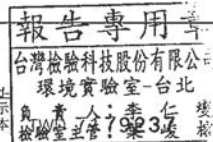 報告專用章
台灣檢驗科技股份有限公
環境實驗室-台北
負責人:李仁
檢驗室主管:葉峻